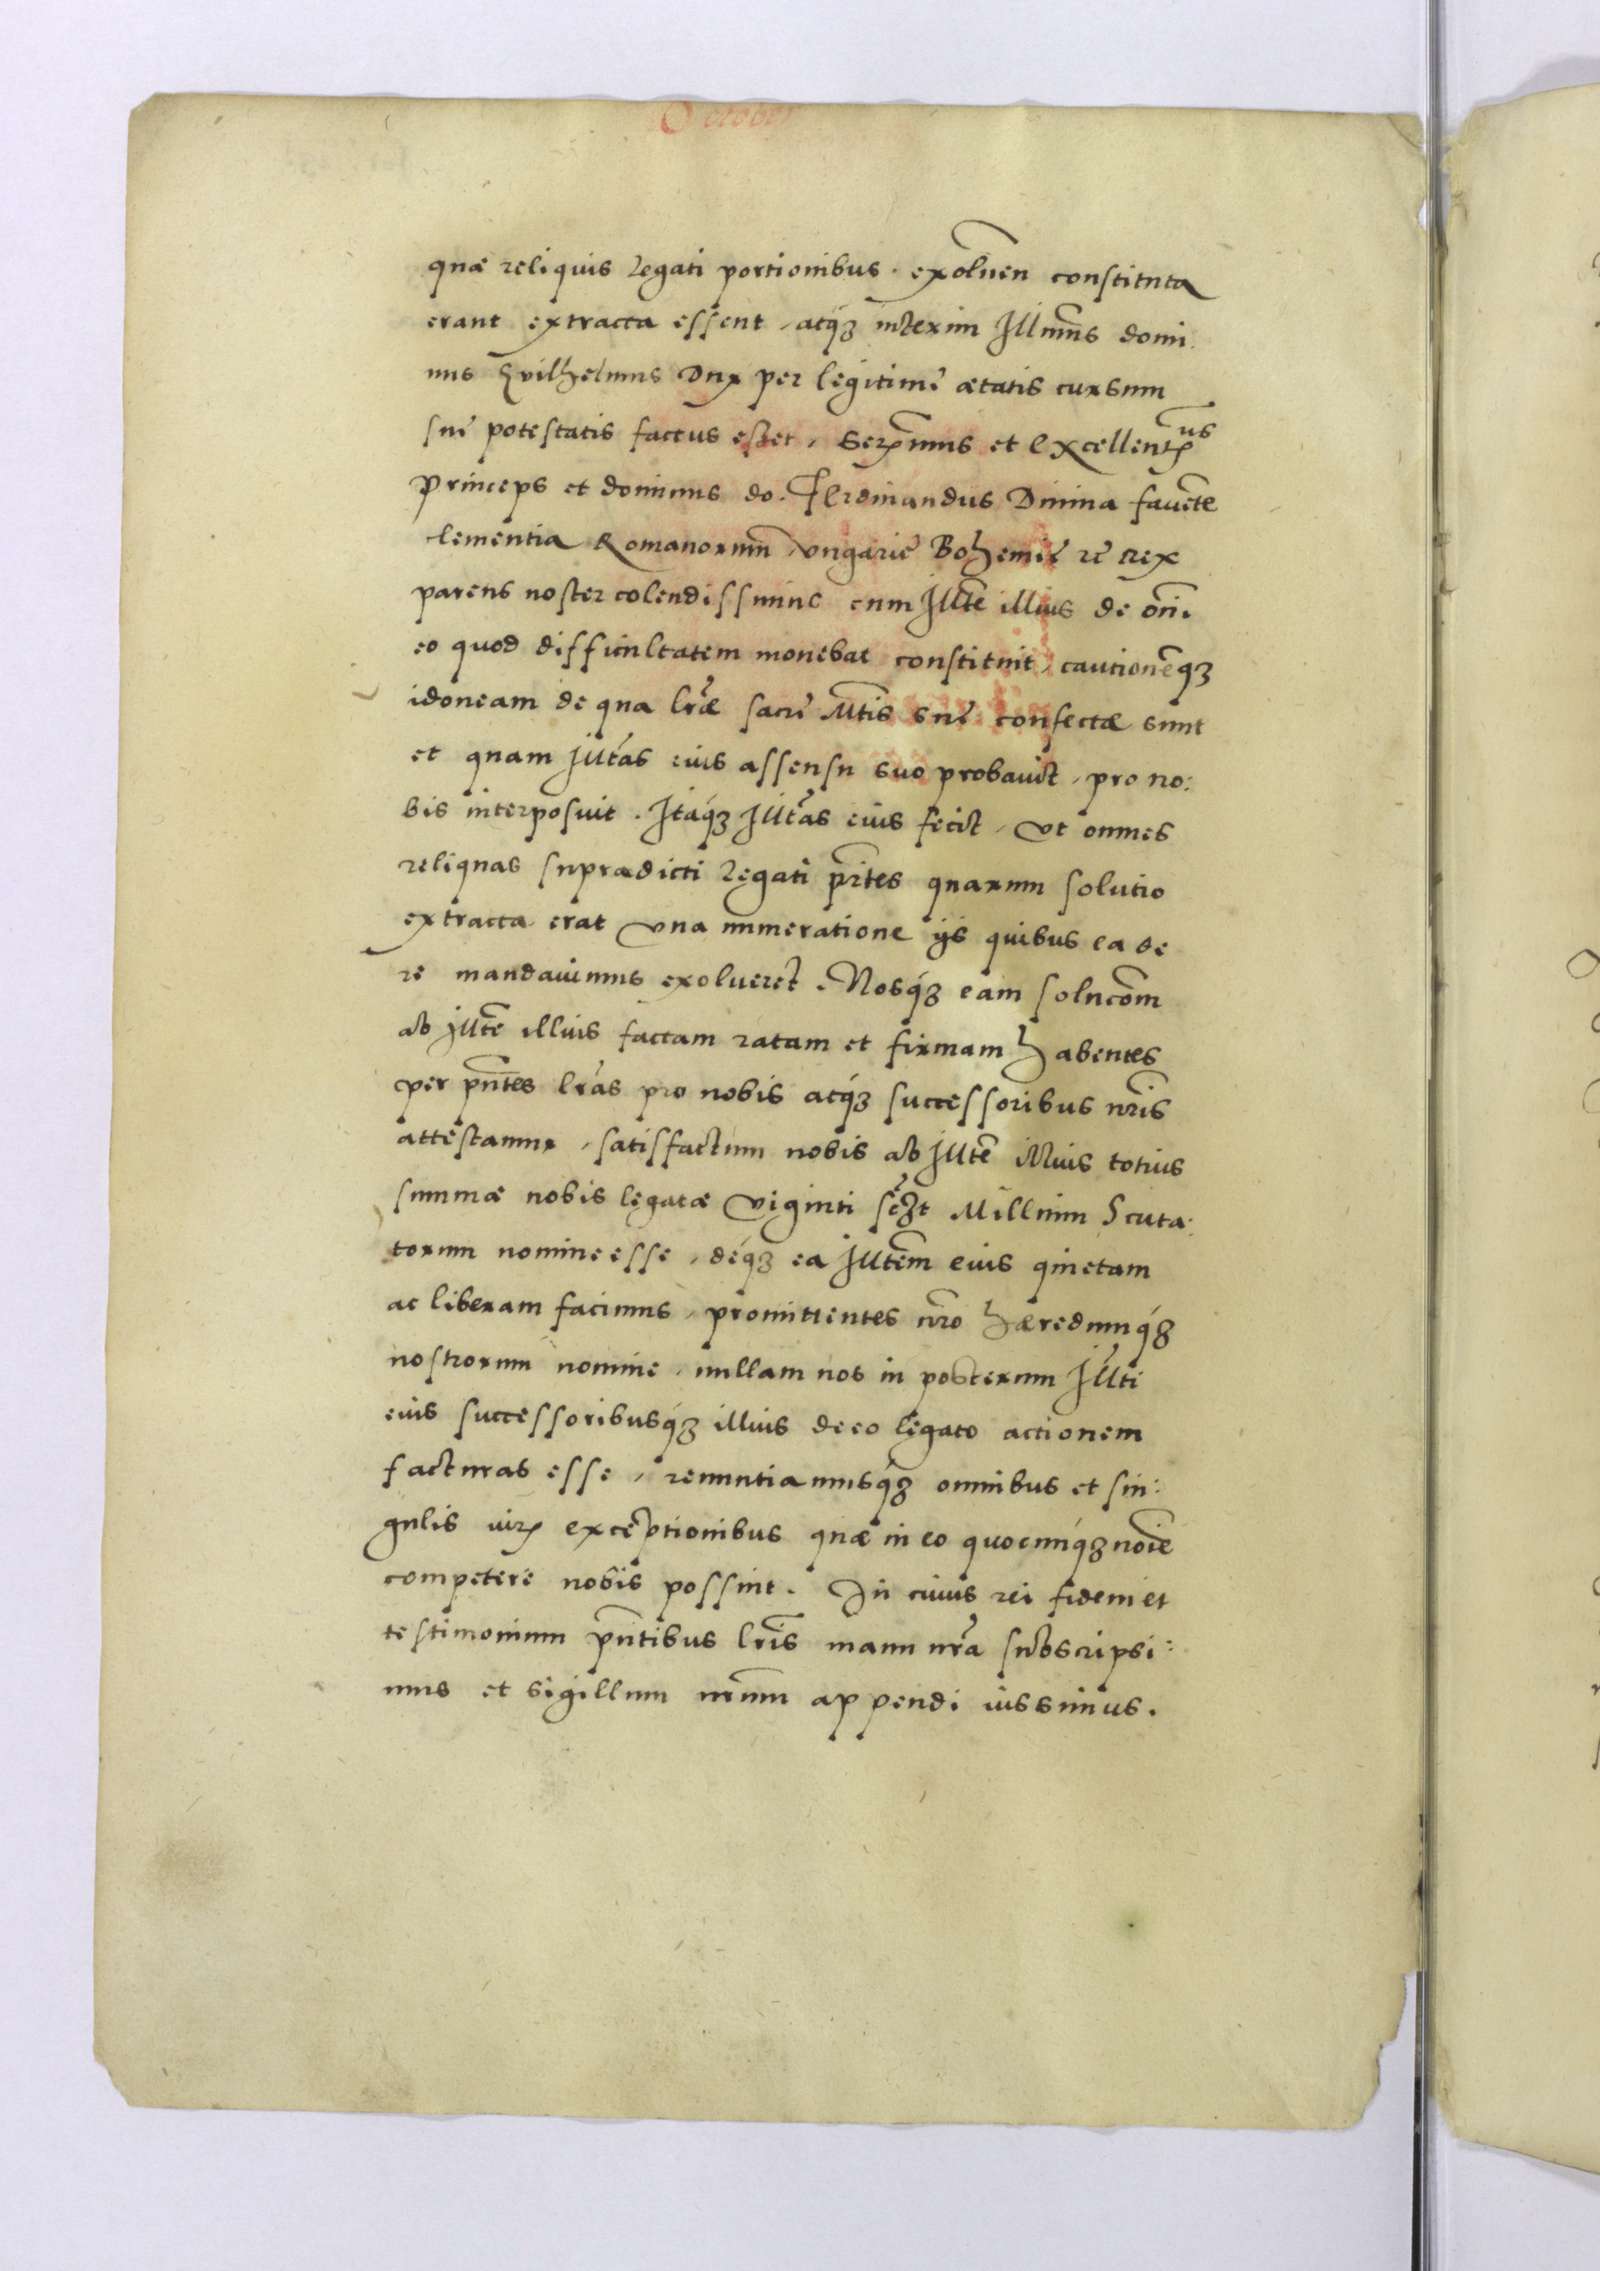 October
quæ reliquis legati portionibus exoluen̄ constituta
erant extracta essent, atq́ꝫ interim Illm̄us domi:
nus Gvilhelmus Dux per legitimę ætatis cursum
suę potestatis factus esset, Serꝫmus et Excellentꝫus
Princeps et dominus do. Ferdinandus Diuina fauēte
clementia Romanorum, Vngarię Bohemię ꝛc Rex
parens noster colendissimus cum Illte illius de om̄i
eo quod difficultatem mouebat constituit, cautionēqꝫ
idoneam de qua lræ sacrę Mtis suę confectæ sunt
et quam Illtas eius assensu suo probauit, pro no:
bis interposuit. Itaq́ꝫ Illtas eius fecit, vt omnes
reliquas supradicti legati partes quarum solutio
extracta erat vna numeratione ijs quibus ea de
re mandauimus exolueret. Nosq́ꝫ eam solucōm
ab Illte illius factam ratam et firmam habentes
per pn̄tes lras pro nobis atq́ꝫ successoribus nris
attestamur, satisfactum nobis ab Illte illius totius
summæ nobis legatæ viginti scꝫt Millium Scuta:
torum nomine esse, deq́ꝫ ea Illtem eius quietam
ac liberam facimus, promittentes nro hæredumq́ꝫ
nostrorum nomine, nullam nos in posterum Illti
eius successoribusq́ꝫ illius de eo legato actionem
facturas esse, renuntiamusq́ꝫ omnibus et sin:
gulis iurꝫ exceptionibus quæ in eo quocunq́ꝫ noīe
competere nobis possint. In cuius rei fidem et
testimonium pn̄tibus lris manu nra subscripsi:
mus et sigillum nrum appendi iussimus.